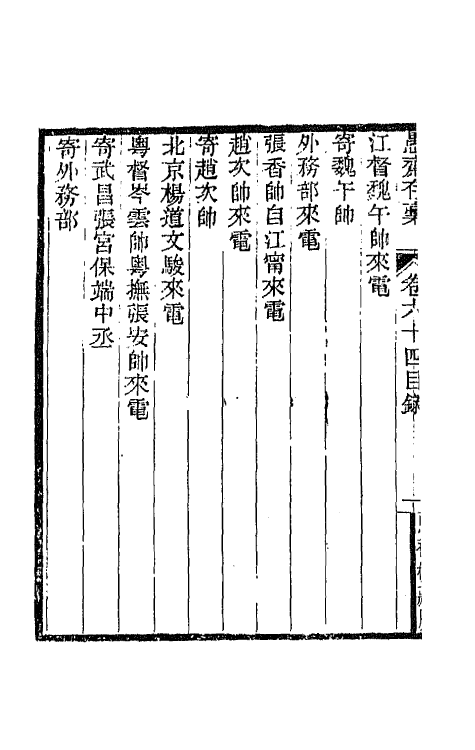 愚齋存藁 卷六十四目錄
江督魏午帥來電
寄魏午帥
外務部來電
張香帥自江甯來電
趙次帥來電
寄趙次帥
北京楊道文駿來電
粵督岑雲帥粵撫張安帥來電
寄武昌張宮保端中丞
寄外務部